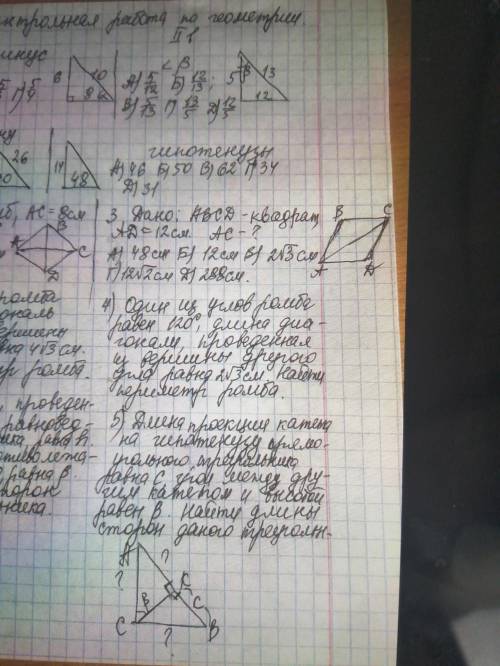 контрольная работа по геометрии
II в
инус
< β
8 10 6
А) 5/12 Б) 12/13;
В) 5/13 Г) 13/5 Д) 12/5
5 β 13 12
гипотенузы
26
14 48
А) 46 Б) 50 В) 62 Г) 34
Д) 31
AC = 8см
3. Дано: ABCD - квадрат,
AD = 12см AC - ?
А) 48см Б) 12см В) 2√3 см
Г) 12√2см Д) 288см.
A B C D
A B C D
ромба
вершины
вна 4√3 см.
ромба.
4) Один из углов ромба
равен 120°, длина диа-
гонали, проведенная
из вершины другого
угла равна 2√3 см. Найти
периметр ромба.
, проведен-
равнобед-
равна h.
равна β.
сторон
5) Длина проекции катета
на гипотенузу прямо-
угольного треугольника
равна C, угол между дру-
гим катетом и высотой
равен β. Найти длины
сторон даного треугольн-
A ?
? K
β C
C ? B